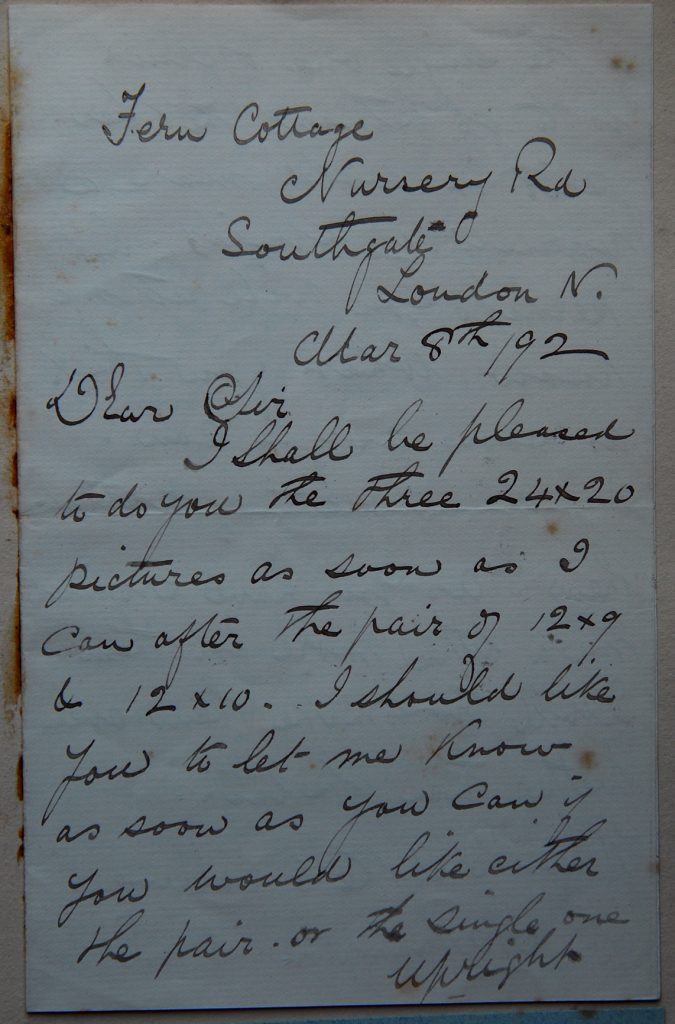 Fern Cottage
Nursery Rd
Southgate
London N.
Mar 8th /92
Dear Sir
I shall be pleased
to do you the three 24x20
pictures as soon as I
can after the pair of 12x9
& 12x10. I should like
you to let me know
as soon as you can if
you would like either
the pair. or the single one
upright